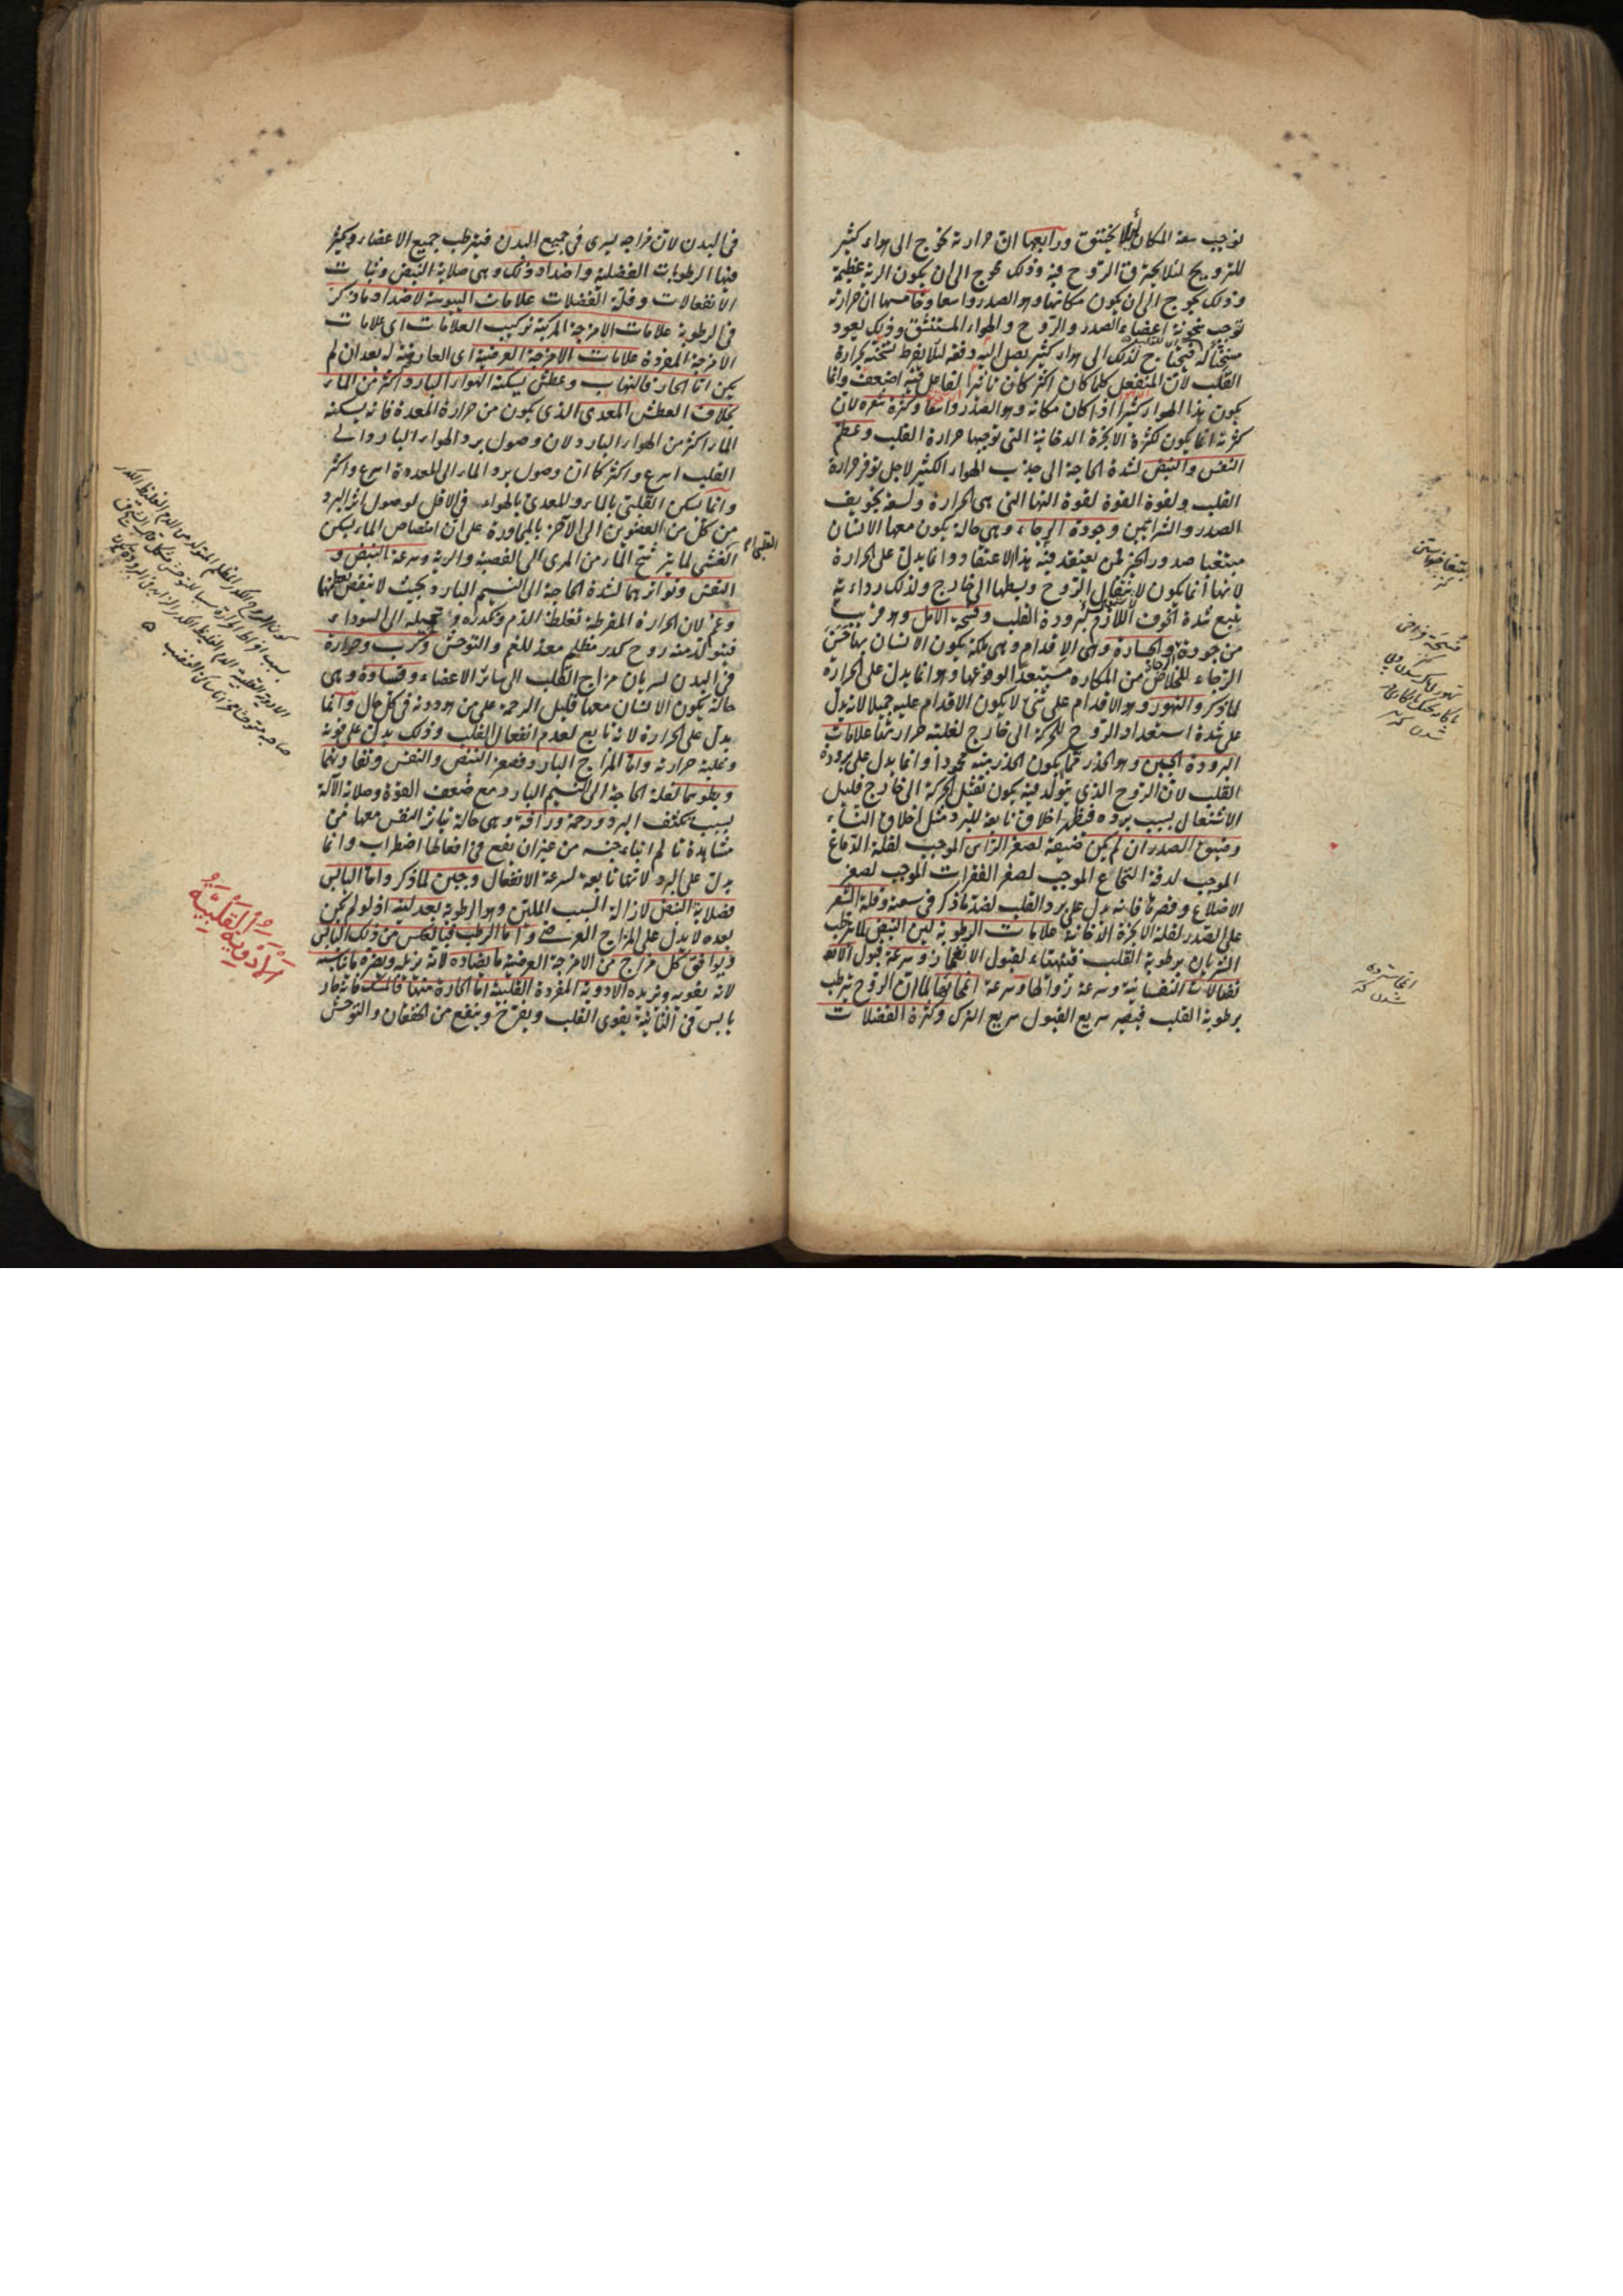 توجب سعة المكان لئلا يختنق ورابعها ان حرارته تحوج الى هواء كثير
للترويح لئلا يحترق الروح فيه وذلك محوج الى ان يكون الرية عظيمة
وذلك يحوج الى ان يكون مكانها وهو الصدر واسعا وخامسها ان حرارته
توجب سخونة اعضاء الصدر والروح والهواء المستنشق وذلك يعود
مسخنا له فيحتاج لذلك الى هواء كثير يصل اليه دفعة لئلا يفرط تسخنه بحرارة
القلب لان المنفعل كلما كان اكثر كان تاثير الفاعل فيه اضعف وانما
يكون هذا الهواء كثيرا اذا كان مكانه وهو الصدر واسعا وكثرة شعره لان
كثرته انما يكون لكثرة الابخرة الدخانية التى توجبها حرارة القلب وعظم
النفس والنبض لشدة الحاجة الى جذب الهواء الكثير لاجل توفر حرارة
القلب ولقوة القوة لقوة التها التى هى الحرارة ولسعة تجويف
الصدر والشرايين وجودة الرجاء وهى حالة يكون معها الانسان
متوقعا صدور الخير لمن يعتقد فيه هذا الاعتقاد وانما يدل على الحرارة
لانها انما تكون لانتقال الروح وبسطها الى خارج ولذلك رداءته
تتبع شدة الخوف اللازم لبرودة القلب وفسحة الامل وهو قريب
من جودة والجسارة وهى الاقدام وهى ملكة يكون الانسان بها حسن
الرجاء للخلاص من المكاره مستبعدا لوقوعها وهو انما يدل على الحرارة
لما ذكر والتهور وهو الاقدام على شىء لا يكون الاقدام عليه جميلا لانه يدل
على شدة استعداد الروح للحركة الى خارج لغلبة حرارتها علامات
البرودة الجبن وهو الحذر مما يكون الحذر منه محمودا وانما يدل على برودة
القلب لان الروح الذى يتولد فيه يكون ثقيل الحركة الى خارج قليل
الاشتعال بسبب برده فيظهر اخلاق تابعة للبرد مثل اخلاق النساء
وضيق الصدر ان لم يكن ضيقه لصغر الراس الموجب لقلة الدماغ
الموجب لدقة النخاع الموجب لصغر الفقرات الموجب لصغر
الاضلاع وقصرها فانه يدل على برد القلب لضد ما ذكر فى سعته وقلة الشعر
على الصدر لقلة الابخرة الدخانية علامات الرطوبة لين النبض لترطب
الشريان برطوبة القلب فتتهياء لقبول الانغماز وسرعة قبول الان
فعالات النفسانية وسرعة زوالها وسرعة انمحائها لما ان الروح ترطب
برطوبة القلب فيصير سريع القبول سريع الترك وكثرة الفضلات
فى البدن لان مزاجه يسرى فى جميع البدن فيترطب جميع الاعضاء ويكثر
فيها الرطوبات الفضلية واضداد ذلك وهى صلابة النبض وثبات
الانفعالات وقلة الفضلات علامات اليبوسة لاضداد ما ذكر
فى الرطوبة علامات الامزجة المركبة تركيب العلامات اى علامات
الامزجة المفردة علامات الامزجة العرضية اى العارضة له بعد ان لم
يكن اما الحار فالتهاب وعطش يسكنه الهواء البارد اكثر من الماء
بخلاف العطش المعدى الذى يكون من حرارة المعدة فانه يسكنه
الماء اكثر من الهواء البارد لان وصول برد الهواء البارد الى
القلب اسرع واكثر كما ان وصول برد الماء الى المعدة اسرع واكثر
وانما يسكن القلبى بالماء والمعدى بالهواء فى الاقل لوصول اثر البرد
من كل من العضوين الى الاخر بالمجاورة على ان امتصاص الماء يسكن
العطش لما يترشح الماء من المرى الى القصبة والرية وسرعة النبض و
النفس وتواترهما لشدة الحاجة الى النسيم البارد بحيث لا ينقص عظمهما
وغم لان الحرارة المفرطة تغلظ الدم وتكدره وتحيله الى السوداء
فيتولد منه روح كدر مظلم معد للغم والتوحش وكرب وحرارة
فى البدن لسريان مزاج القلب الى سائر الاعضاء وقساوة وهى
حالة يكون الانسان معها قليل الرحمة على من هو دونه فى كل حال وانما
يدل على الحرارة لانه تابع لعدم انفعال القلب وذلك يدل على قوته
وغلبة حرارته واما المزاج البارد فصغر النبض والنفس وتفاوتهما
وبطوهما لقلة الحاجة الى النسيم البارد مع ضعف القوة وصلابة الآلة
بسبب تكثف البرد ورحمة ورافة وهى حالة يتاثر النفس معها من
مشاهدة تالم ابناء جنسه من غير ان يقع فى افعالها اضطراب وانما
يدل على البرد لانها تابعة لسرعة الانفعال وجبن لما ذكر واما اليابس
فصلابة النبض لازالة السبب الملين وهو الرطوبة بعد لينه اذ لو لم يكن
بعده لا يدل على المزاج العرضى واما الرطب فبالعكس من ذلك اليابس
ويوافق كل مزاج من الامزجة العرضية ما يضاده لانه يزيله ويضره ما يناسبه
لانه يقويه ويزيده الادوية المفردة القلبية اما الحارة منها فالمسك فانه حار
يابس فى الثانية يقوى القلب ويفرح وينفع من الخفقان والتوحش
الادوية القلبية